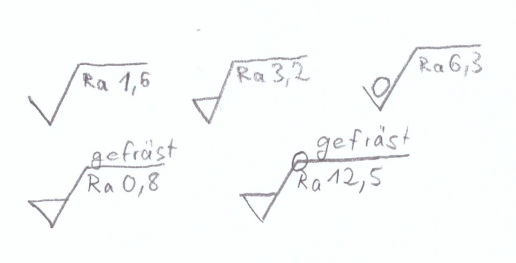 Ra 1,6
Ra 3,2
Ra 6,3
gefräst
Ra 0,8
gefräst
Ra 12,5